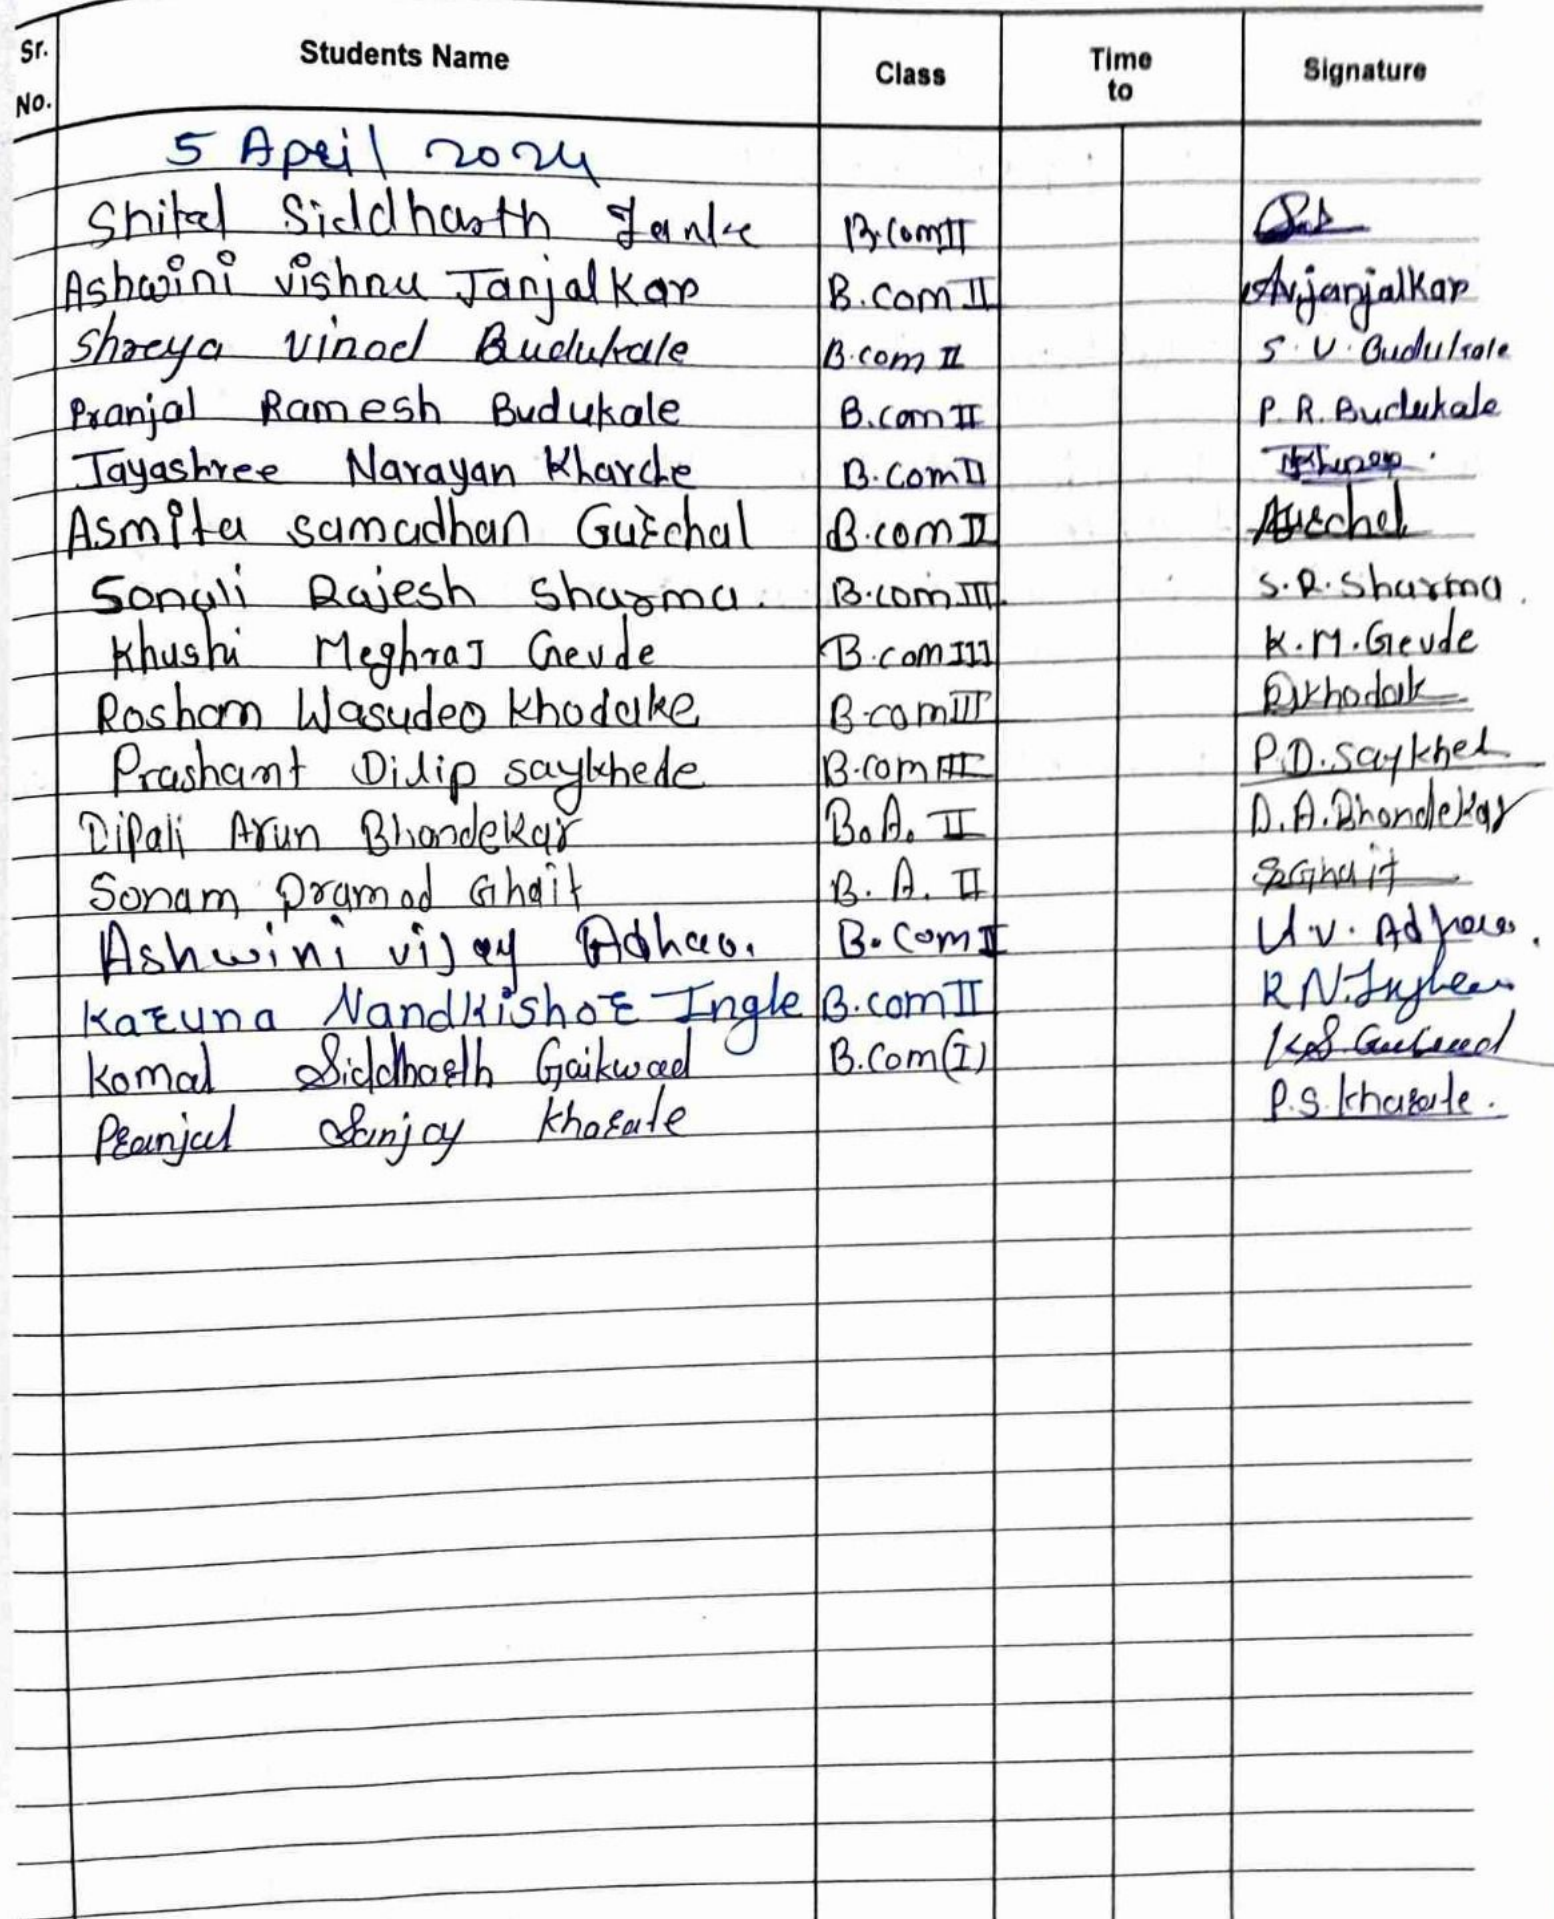 Sr. No. Students Name Class Time to Signature
5 April 2024
Shital Siddharth B.Com II
Ashwini Vishnu Janjalkar B.com II A.v.janjalkar
Shreya Vinod Budukale B.com II S.V. Budukale
Pranjal Ramesh Budukale B.com II P. R. Budukale
Jayashree Narayan Kharche B.com II
Asmita samadhan Gurchal B.com II
Sonali Rajesh Sharma. B.com III S.R. Sharma.
Khushi Meghraj Gevde B.com III K.M. Gevde
Roshan Wasudeo Khodake B.com III
Prashant Dilip saykhede B.com III P.D. Saykhed
Dipali Arun Bhondekar B.A. II D.A. Bhondekar
Sonam Pramod Ghait B. A. II Ghait
Ashwini vijay Adhao. B. Com I
Karuna Nandkishor Ingle B.com II
Komal Siddharth Gaikwad B.Com (I)
Pranjal Sanjay Kharate P.S. Kharate.